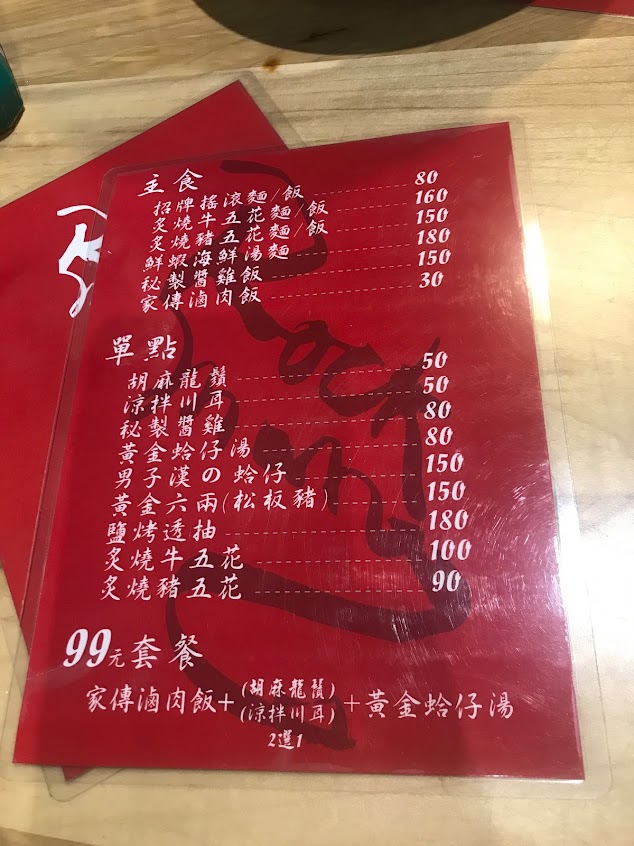 主食
招牌搖滾麵/飯 80
炙燒牛五花麵/飯 160
炙燒豬五花麵/飯 150
鮮蝦海鮮湯麵 180
秘製醬雞飯 150
家傳滷肉飯 30
單點
胡麻龍鬚 50
涼拌川耳 50
秘製醬雞 80
黃金蛤仔湯 80
男子漢の蛤仔 150
黃金六兩(松板豬) 150
鹽烤透抽 180
炙燒牛五花 100
炙燒豬五花 90
99元套餐
家傳滷肉飯+(胡麻龍鬚)(涼拌川耳)+黃金蛤仔湯
2選1